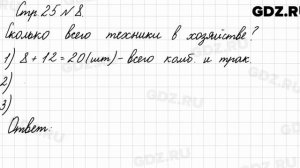 Стр. 25 №8. GDZ.RU
Сколько всего техники в хозяйстве?
1) 8 + 12 = 20 (шт) - всего комб. и трак.
2)
3)
Ответ:
GDZ.RU